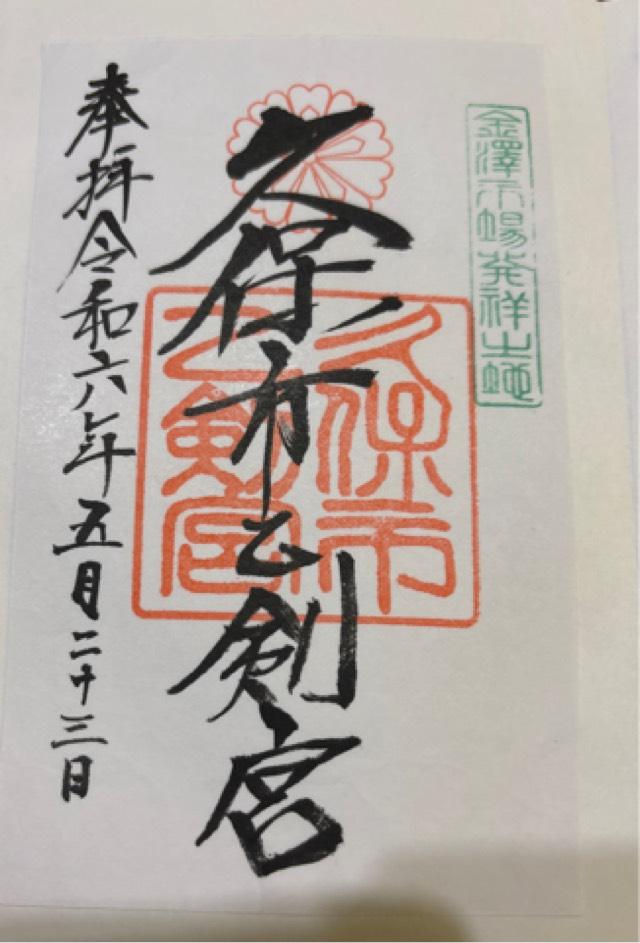 金澤市場発祥之地
久保市乙剣宮
久保市
乙剣宮
奉拝令和六年五月二十三日